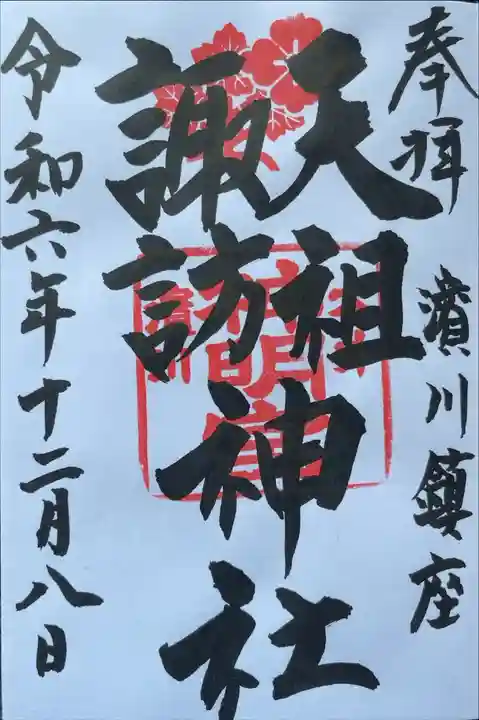 奉拜
濱川鎮座
天祖
諏訪
神社
令和六年十二月八日